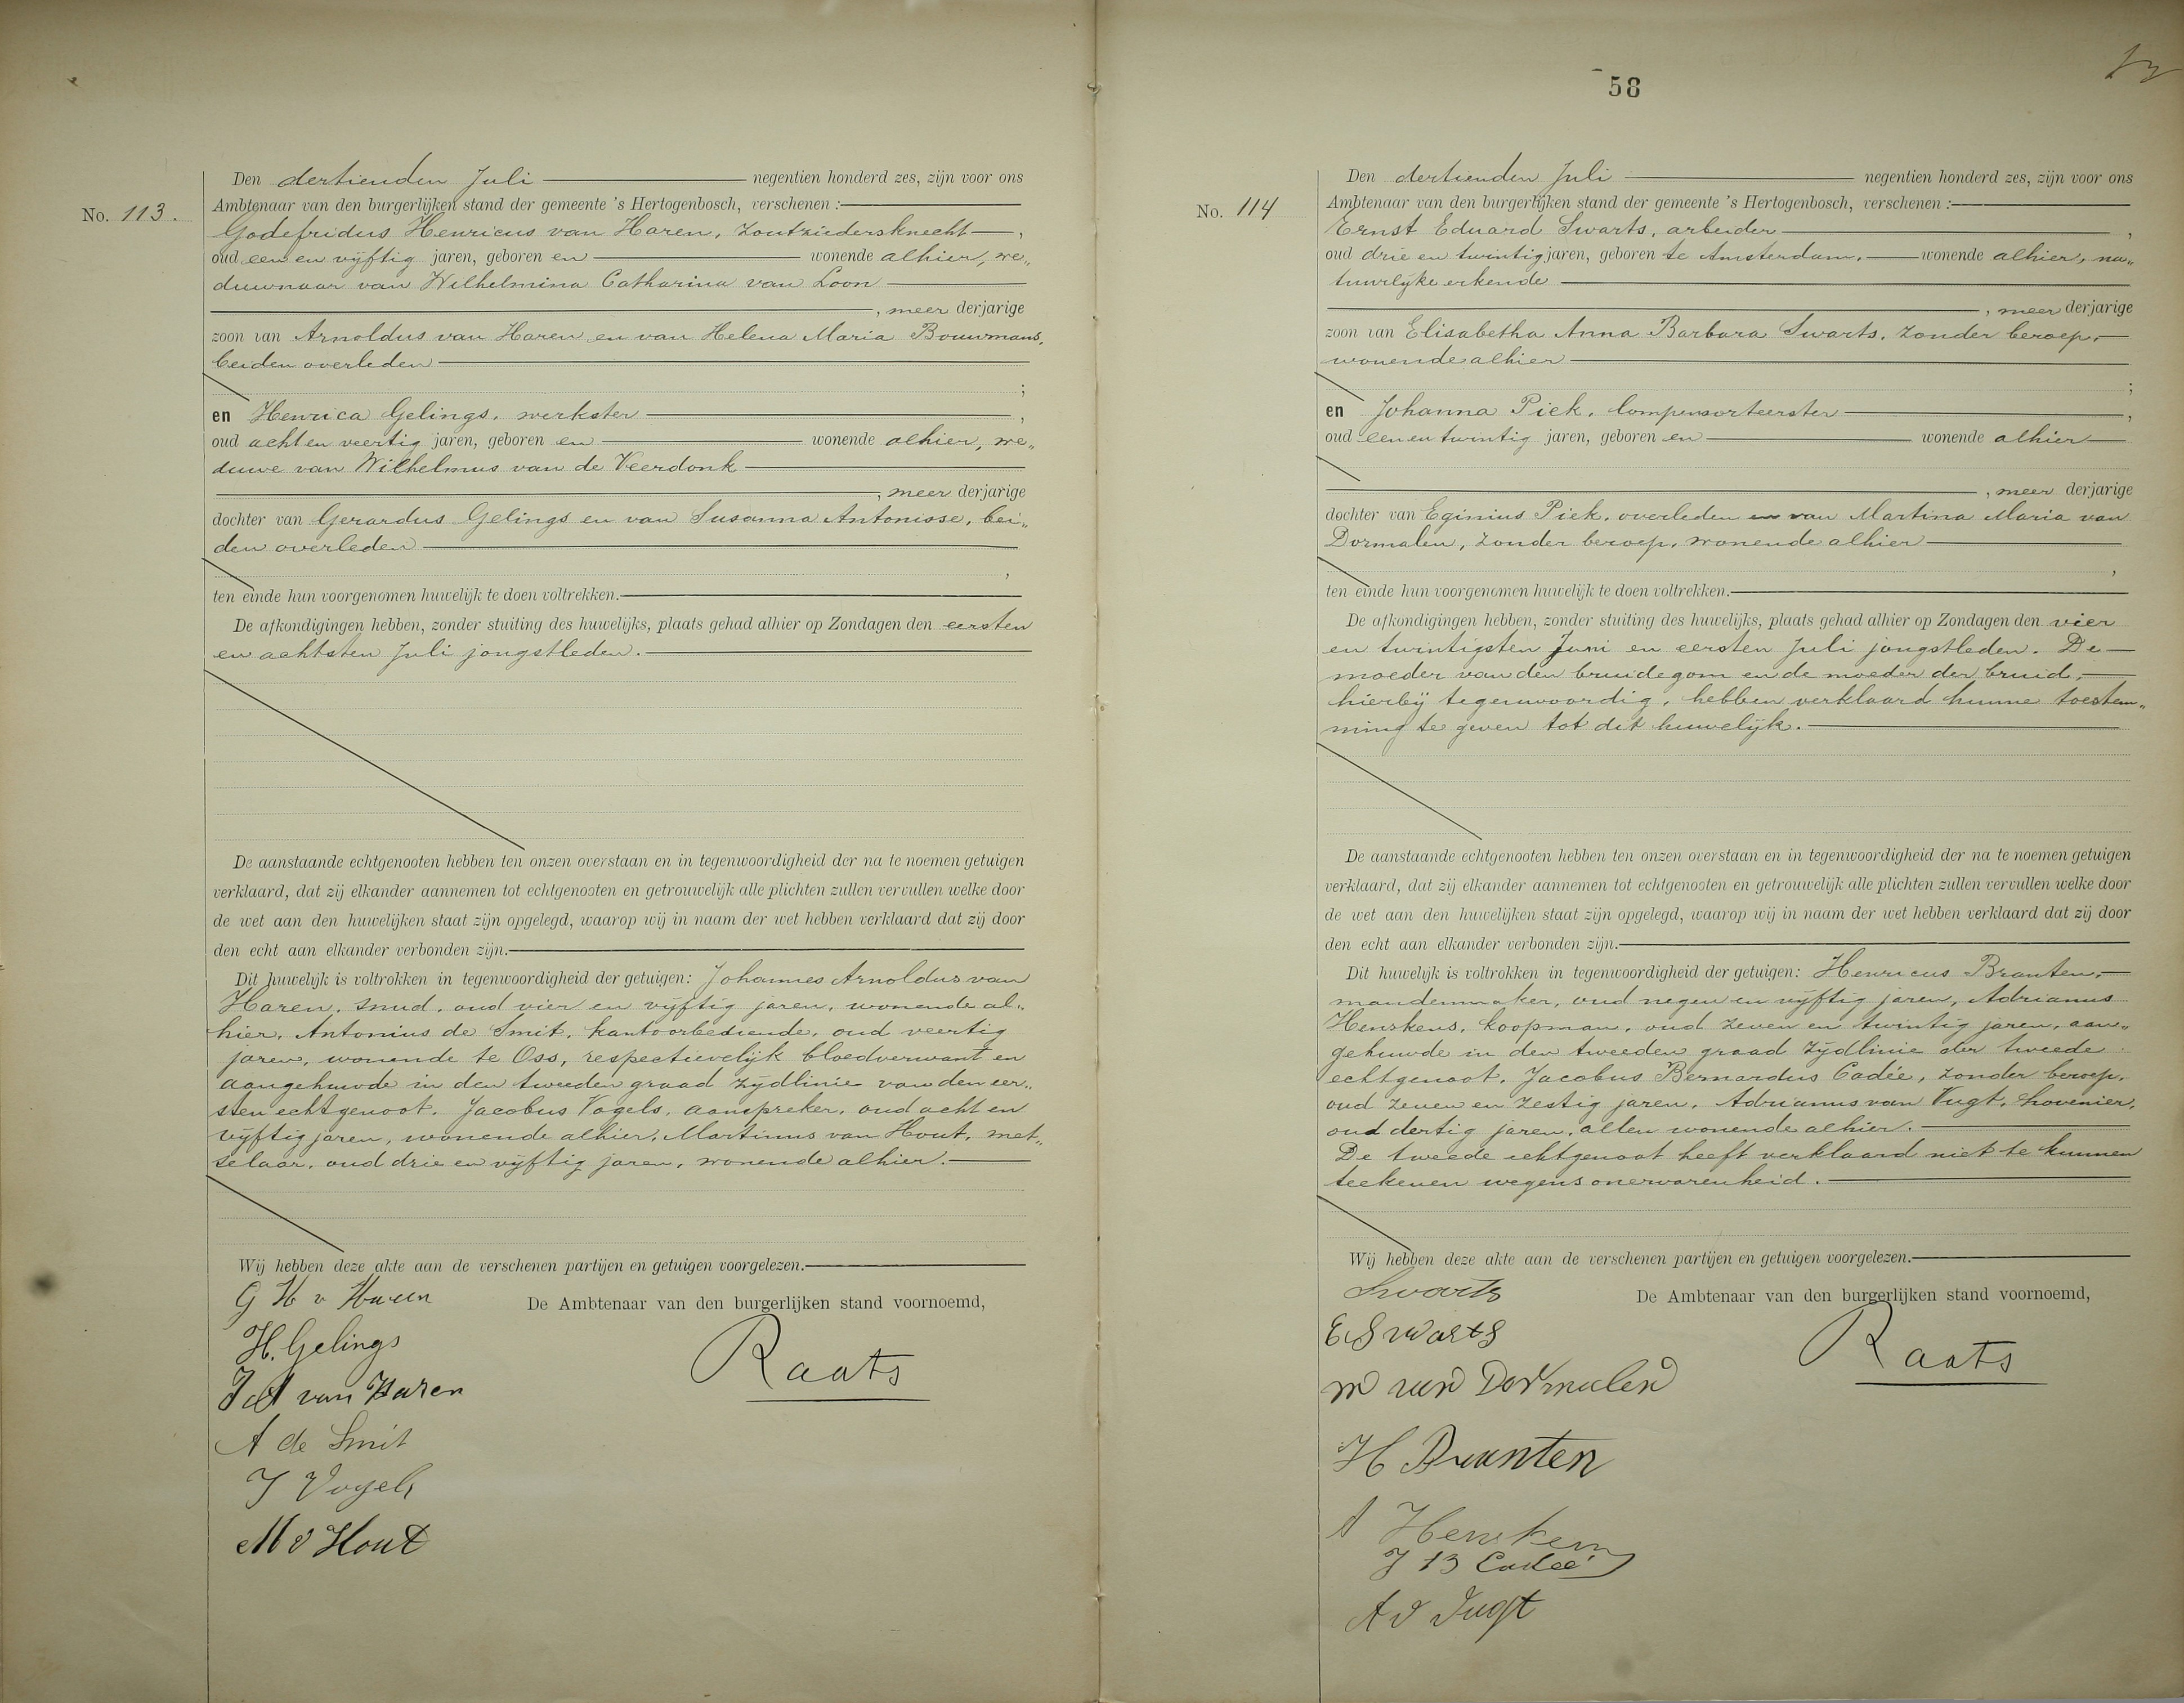 No. 113.
Den dertienden Juli negentien honderd zes, zijn voor ons
Ambtenaar van den burgerlijken stand der gemeente 's Hertogenbosch, verschenen :
Godefridus Henricus van Haren, zoutziedersknecht,
oud een en vijftig jaren, geboren en wonende alhier, we„
duwnaar van Wilhelmina Catharina van Loon
, meer derjarige
zoon van Arnoldus van Haren en van Helena Maria Bouwmans,
beiden overleden
;
en Henrica Gelings, werkster,
oud acht en veertig jaren, geboren en wonende alhier, we„
duwe van Wilhelmus van de Veerdonk
, meer derjarige
dochter van Gerardus Gelings en van Susanna Antonisse, bei„
den overleden
,
ten einde hun voorgenomen huwelijk te doen voltrekken.
De afkondigingen hebben, zonder stuiting des huwelijks, plaats gehad alhier op Zondagen den eersten
en achtsten Juli jongstleden.
De aanstaande echtgenooten hebben ten onzen overstaan en in tegenwoordigheid der na te noemen getuigen
verklaard, dat zij elkander aannemen tot echtgenooten en getrouwelijk alle plichten zullen vervullen welke door
de wet aan den huwelijken staat zijn opgelegd, waarop wij in naam der wet hebben verklaard dat zij door
den echt aan elkander verbonden zijn.
Dit huwelijk is voltrokken in tegenwoordigheid der getuigen: Johannes Arnoldus van
Haren, smid, oud vier en vijftig jaren, wonende al„
hier, Antonius de Smit, kantoorbediende, oud veertig
jaren, wonende te Oss, respectievelijk bloedverwant en
aangehuwde in den tweeden graad zijdlinie van den eer„
sten echtgenoot, Jacobus Vogels, aanspreker, oud acht en
vijftig jaren, wonende alhier, Martinus van Hout, met„
selaar, oud drie en vijftig jaren, wonende alhier.
Wij hebben deze akte aan de verschenen partijen en getuigen voorgelezen.
G H v Haren
De Ambtenaar van den burgerlijken stand voornoemd,
H. Gelings
Raats
J A van Haren
A de Smit
J Vogels
M v Hout
58
No. 114
Den dertienden Juli negentien honderd zes, zijn voor ons
Ambtenaar van den burgerlijken stand der gemeente 's Hertogenbosch, verschenen :
Ernst Eduard Swarts, arbeider,
oud drie en twintig jaren, geboren te Amsterdam, wonende alhier, na„
tuurlijke erkende
, meer derjarige
zoon van Elisabetha Anna Barbara Swarts, zonder beroep,
wonende alhier
;
en Johanna Piek, lompensorteerster,
oud een en twintig jaren, geboren en wonende alhier
, meer derjarige
dochter van Eginius Piek, overleden en van Martina Maria van
Dormalen, zonder beroep, wonende alhier
,
ten einde hun voorgenomen huwelijk te doen voltrekken.
De afkondigingen hebben, zonder stuiting des huwelijks, plaats gehad alhier op Zondagen den vier
en twintigsten Juni en eersten Juli jongstleden. De
moeder van den bruidegom en de moeder der bruid,
hierbij tegenwoordig, hebben verklaard hunne toestem„
ming te geven tot dit huwelijk.
De aanstaande echtgenooten hebben ten onzen overstaan en in tegenwoordigheid der na te noemen getuigen
verklaard, dat zij elkander aannemen tot echtgenooten en getrouwelijk alle plichten zullen vervullen welke door
de wet aan den huwelijken staat zijn opgelegd, waarop wij in naam der wet hebben verklaard dat zij door
den echt aan elkander verbonden zijn.
Dit huwelijk is voltrokken in tegenwoordigheid der getuigen: Henricus Branten,
mandenmaker, oud negen en vijftig jaren, Adrianus
Henskens, koopman, oud zeven en twintig jaren, aan„
gehuwde in den tweeden graad zijdlinie der tweede
echtgenoot, Jacobus Bernardus Cadée, zonder beroep,
oud zeven en zestig jaren, Adrianus van Vugt, hovenier,
oud dertig jaren, allen wonende alhier.
De tweede echtgenoot heeft verklaard niet te kunnen
teekenen wegens onervarenheid.
Wij hebben deze akte aan de verschenen partijen en getuigen voorgelezen.
Swarts
De Ambtenaar van den burgerlijken stand voornoemd,
E Swarts
Raats
m van Dormalen
H Branten
A Henskens
J B Cadée
A v Vugt